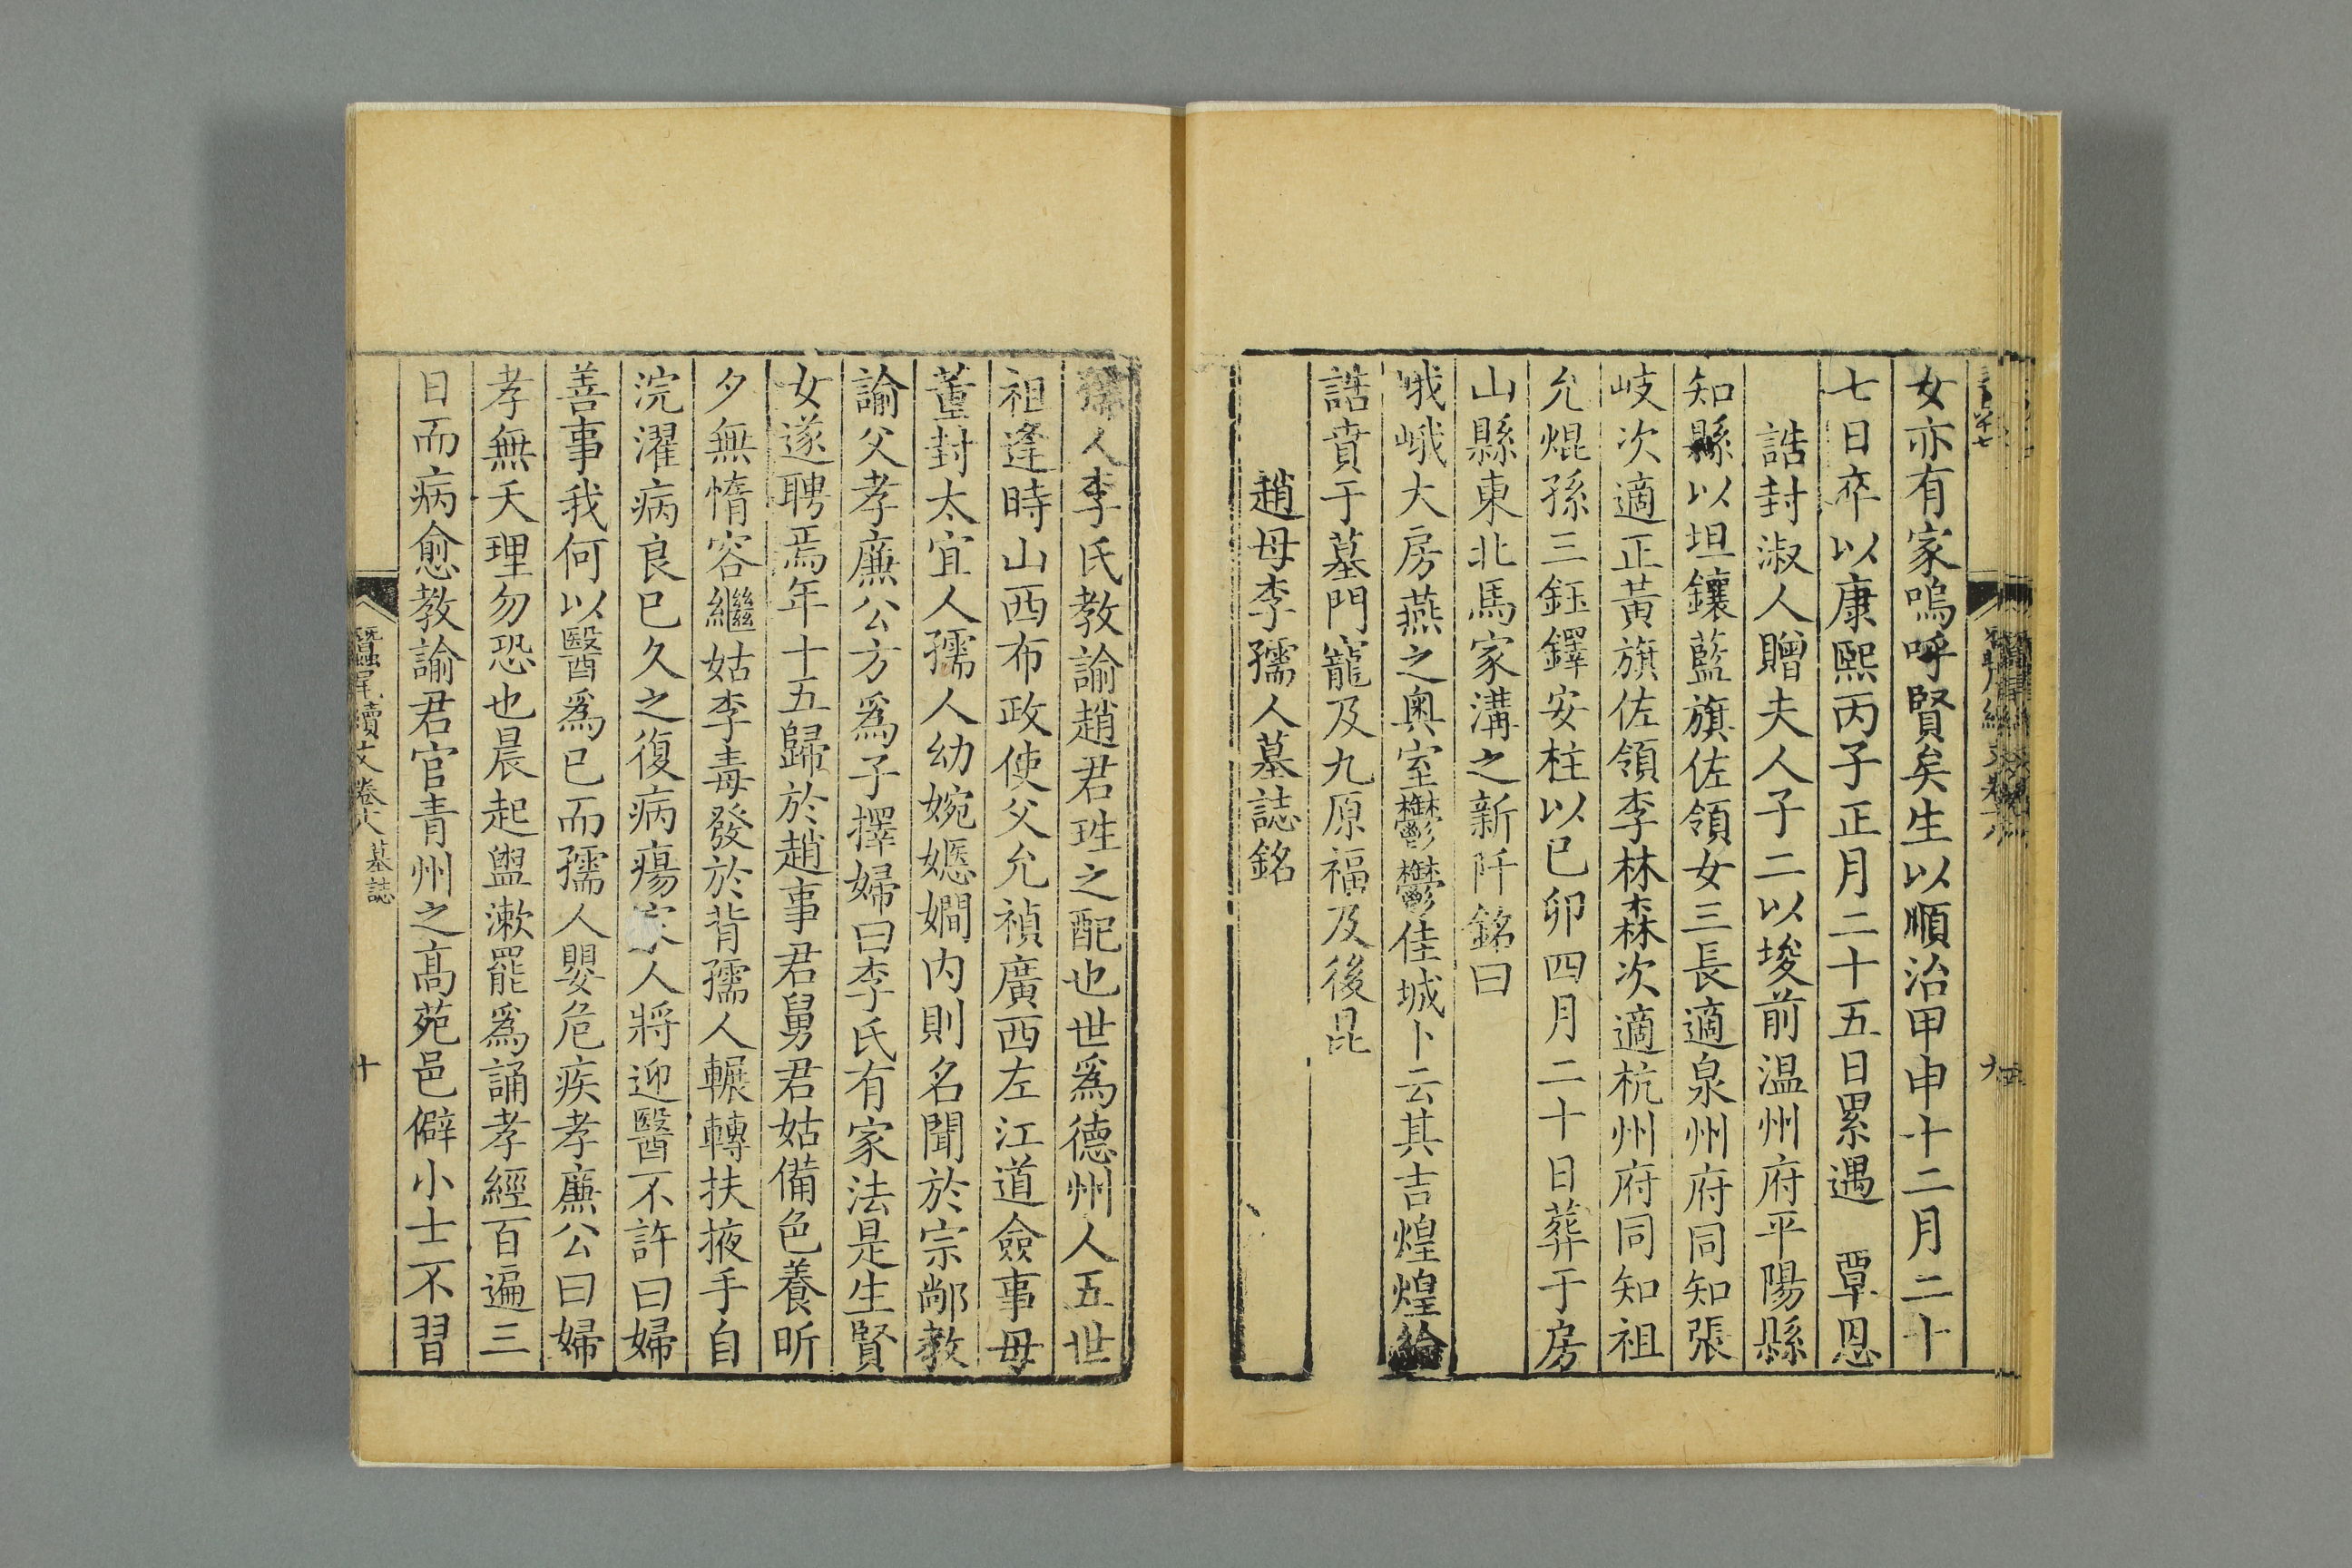 女亦有家嗚呼賢矣生以順治甲申十二月二十
七日卒以康熙丙子正月二十五日累遇 覃恩
誥封淑人贈夫人子二以埈前温州府平陽縣
知縣以坦鑲藍旗佐領女三長適泉州府同知張
岐次適正黃旗佐領李林森次適杭州府同知祖
允焜孫三鈺鐸安柱以巳卯四月二十日葬于房
山縣東北馬家溝之新阡銘曰
峨峨大房燕之奥室鬱鬱佳城卜云其吉煌煌綸
誥賁于墓門寵及九原福及後昆
趙母李孺人墓誌銘
孺人李氏教諭趙君珄之配也世爲德州人五世
祖逢時山西布政使父允禎廣西左江道僉事母
董封太宜人孺人幼婉嫕嫺内則名聞於宗鄰教
諭父孝廉公方爲子擇婦曰李氏有家法是生賢
女遂聘焉年十五歸於趙事君舅君姑備色養昕
夕無惰容繼姑李毒發於背孺人輾轉扶掖手自
浣濯病良巳久之復病瘍家人將迎醫不許曰婦
善事我何以醫爲巳而孺人嬰危疾孝廉公曰婦
孝無夭理勿恐也晨起盥漱罷爲誦孝經百遍三
日而病愈教諭君官青州之高苑邑僻小士不習
蠶尾續文卷六 墓誌 十